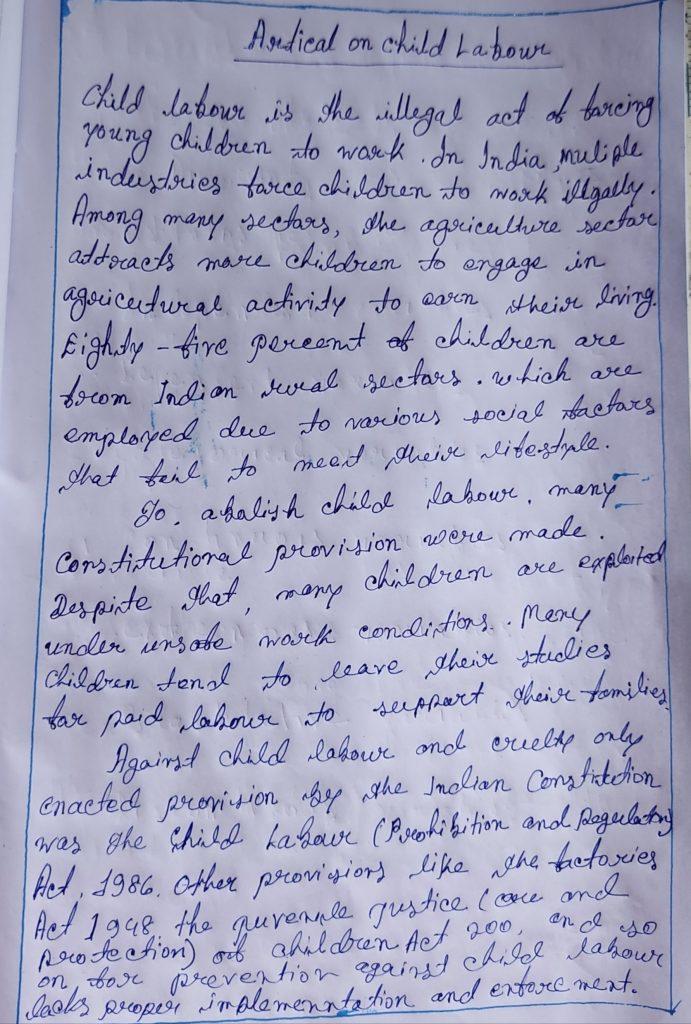 Artical on child Labour
Child labour is the illegal act of forcing
young children to work. In India, muliple
industries force children to work illgally.
Among many sectors, the agriculture sector
attracts more children to engage in
agricultural activity to earn their living.
Eighty-five percent of children are
from Indian rural sectors. which are
employed due to various social factors
that fail to meet their lifestyle.
To, abolish child labour, many
Constitutional provision were made.
Despite that, many children are exploited
under unsafe work conditions. Many
Children tend to leave their studies
for paid labour to support their families.
Against child labour and cruelty only
enacted provision by the Indian Constitution
was the Child Labour (Prohibition and Regulation)
Act, 1986. Other provisions like the factories
Act 1948, the juvenile justice (care and
protection) of children Act 200, and so
on for prevention against child labour
lacks proper implemenntation and enforcment.